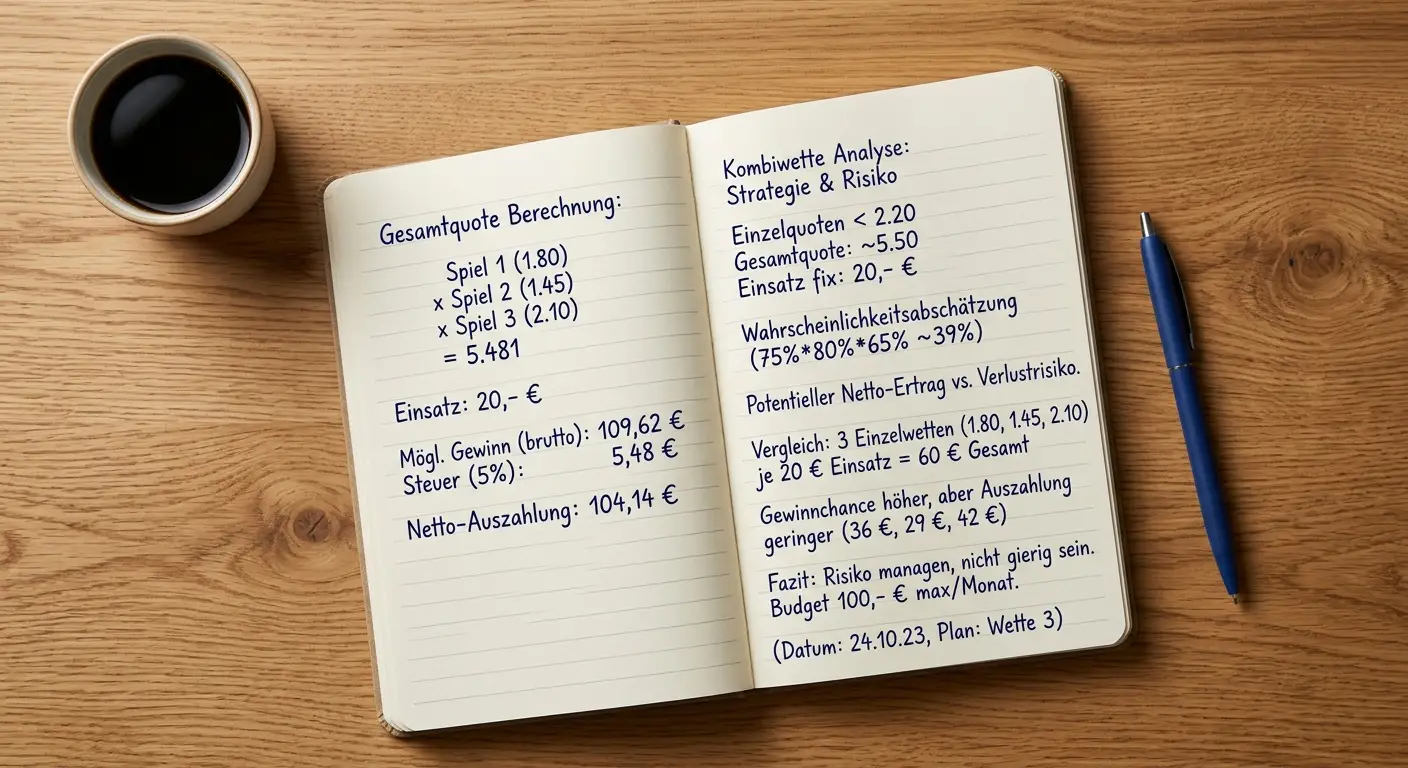 Gesamtquote Berechnung:
Spiel 1 (1.80)
x Spiel 2 (1.45)
x Spiel 3 (2.10)
= 5.481
Einsatz: 20,- €
Mögl. Gewinn (brutto): 109,62 €
Steuer (5%): 5,48 €
Netto-Auszahlung: 104,14 €
Kombiwette Analyse:
Strategie & Risiko
Einzelquoten < 2.20
Gesamtquote: ~5.50
Einsatz fix: 20,- €
Wahrscheinlichkeitsabschätzung
(75%*80%*65% ~39%)
Potentieller Netto-Ertrag vs. Verlustrisiko.
Vergleich: 3 Einzelwetten (1.80, 1.45, 2.10)
je 20 € Einsatz = 60 € Gesamt
Gewinnchance höher, aber Auszahlung
geringer (36 €, 29 €, 42 €)
Fazit: Risiko managen, nicht gierig sein.
Budget 100,- € max/Monat.
(Datum: 24.10.23, Plan: Wette 3)